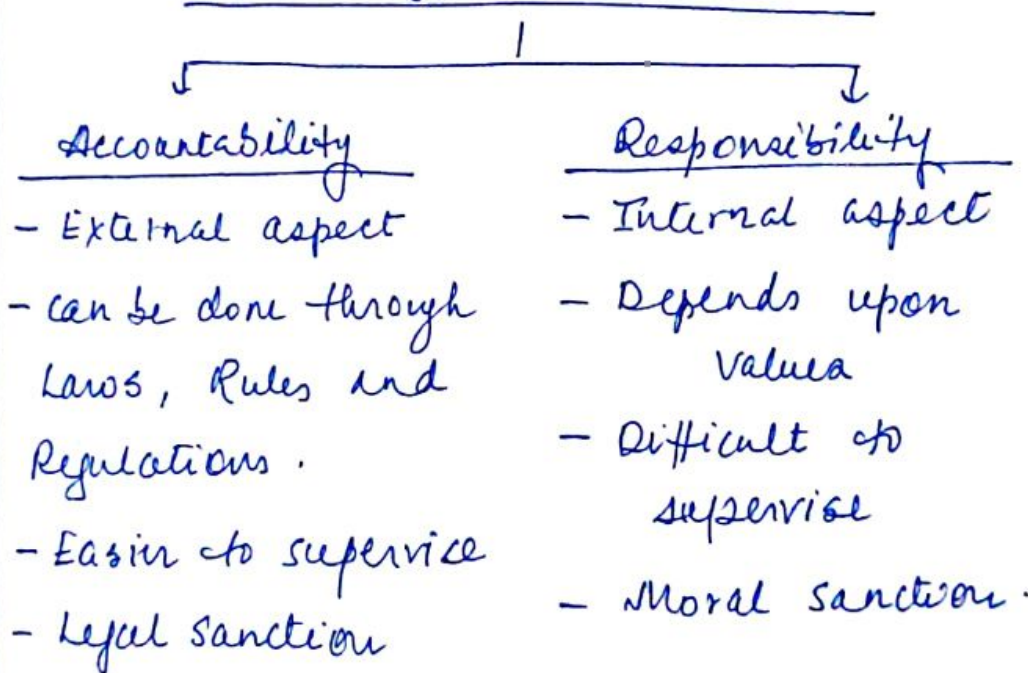 Accountability
- External aspect
- can be done through
Laws, Rules and
Regulations.
- Easier to supervice
- Legal sanction
Responsibility
- Internal aspect
- Depends upon
Values
- Difficult to
supervise
- Moral sanction.